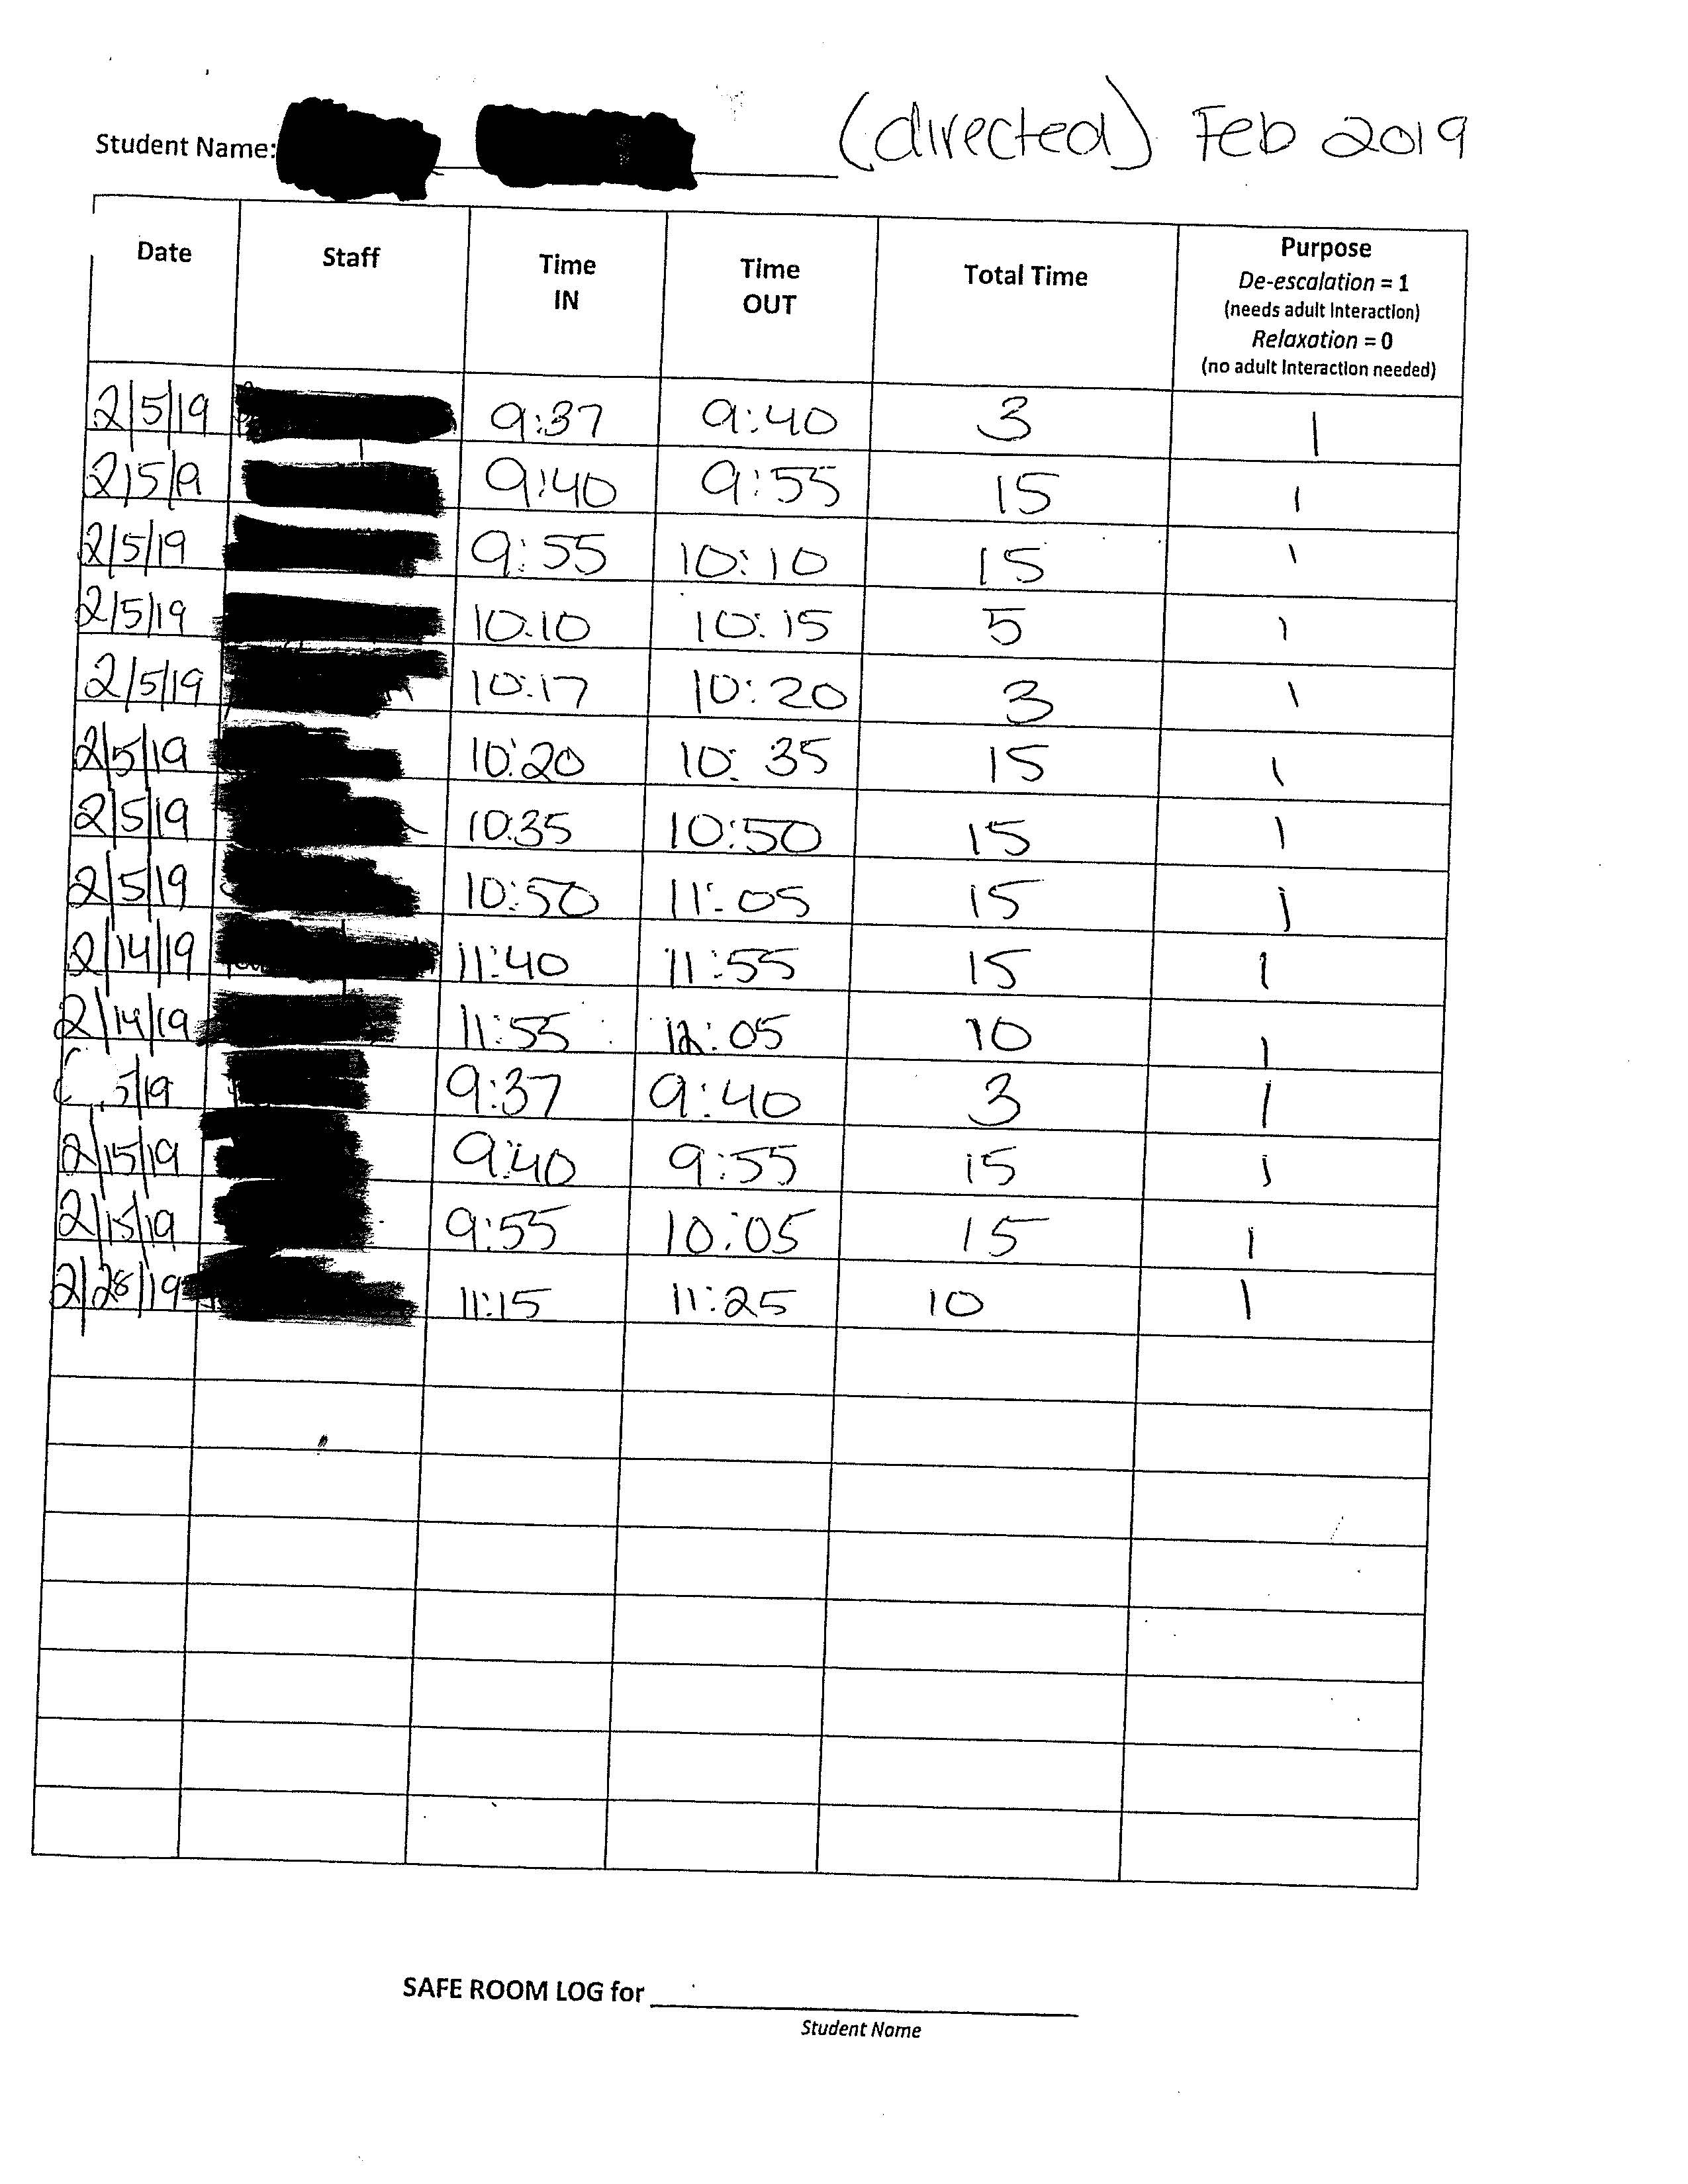 Student Name: (directed) Feb 2019
Date Staff Time IN Time OUT Total Time Purpose
De-escalation = 1
(needs adult interaction)
Relaxation = 0
(no adult interaction needed)
2/5/19 9:37 9:40 3 1
2/5/9 9:40 9:55 15 1
2/5/19 9:55 10:10 15 1
2/5/19 10:10 10:15 5 1
2/5/19 10:17 10:20 3 1
2/5/19 10:20 10:35 15 1
2/5/19 10:35 10:50 15 1
2/5/19 10:50 11:05 15 1
2/14/19 11:40 11:55 15 1
2/14/19 11:55 12:05 10 1
5/19 9:37 9:40 3 1
2/15/19 9:40 9:55 15 1
2/15/19 9:55 10:05 15 1
2/28/19 11:15 11:25 10 1
SAFE ROOM LOG for
Student Name